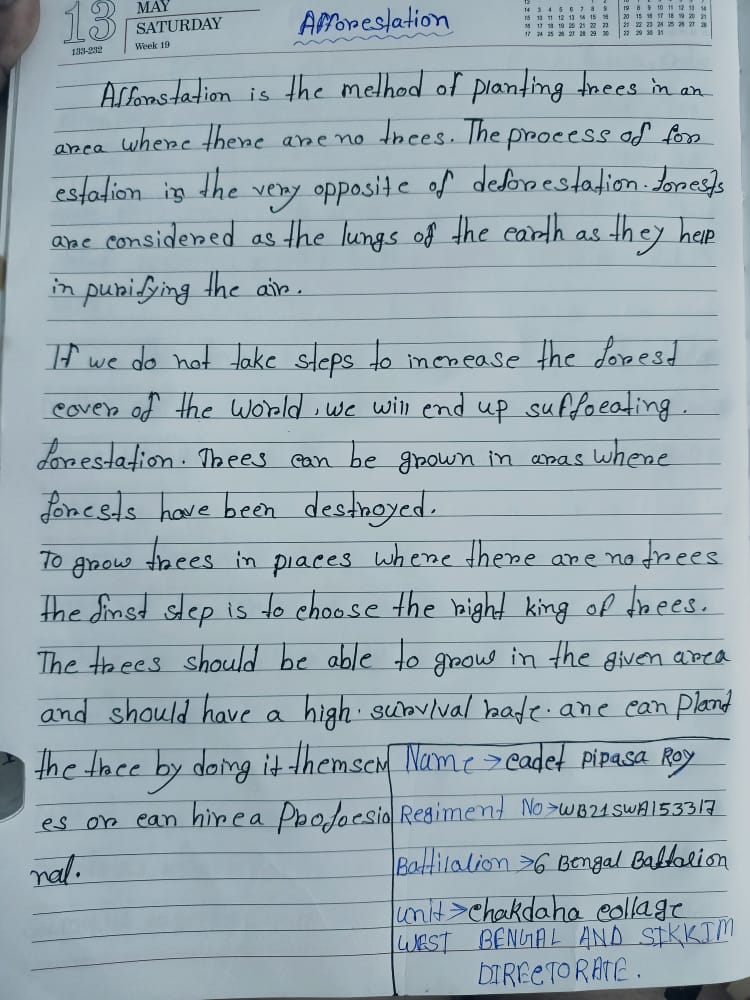 13
133-232
MAY
SATURDAY
Week 19
Afforestation
Afforstation is the method of planting trees in an
area where there are no trees. The process of for
estation is the very opposite of deforestation. forests
are considered as the lungs of the earth as they help
in purifying the air.
If we do not take steps to increase the forest
cover of the World, we will end up suffocating.
forestation. Trees can be grown in aras where
forests have been destroyed.
To grow trees in places where there are no trees
the first step is to choose the right king of trees.
The trees should be able to grow in the given area
and should have a high. survival rate. are can Plant
the tree by doing it themsem
es or can hire a Profoesio
nal.
Name → cadet Pipasa Roy
Regiment No → WB21SWA153317
Battilalion → 6 Bengal Battalion
unit → chakdaha collage
WEST BENGAL AND SIKKIM
DIRECTORATE.